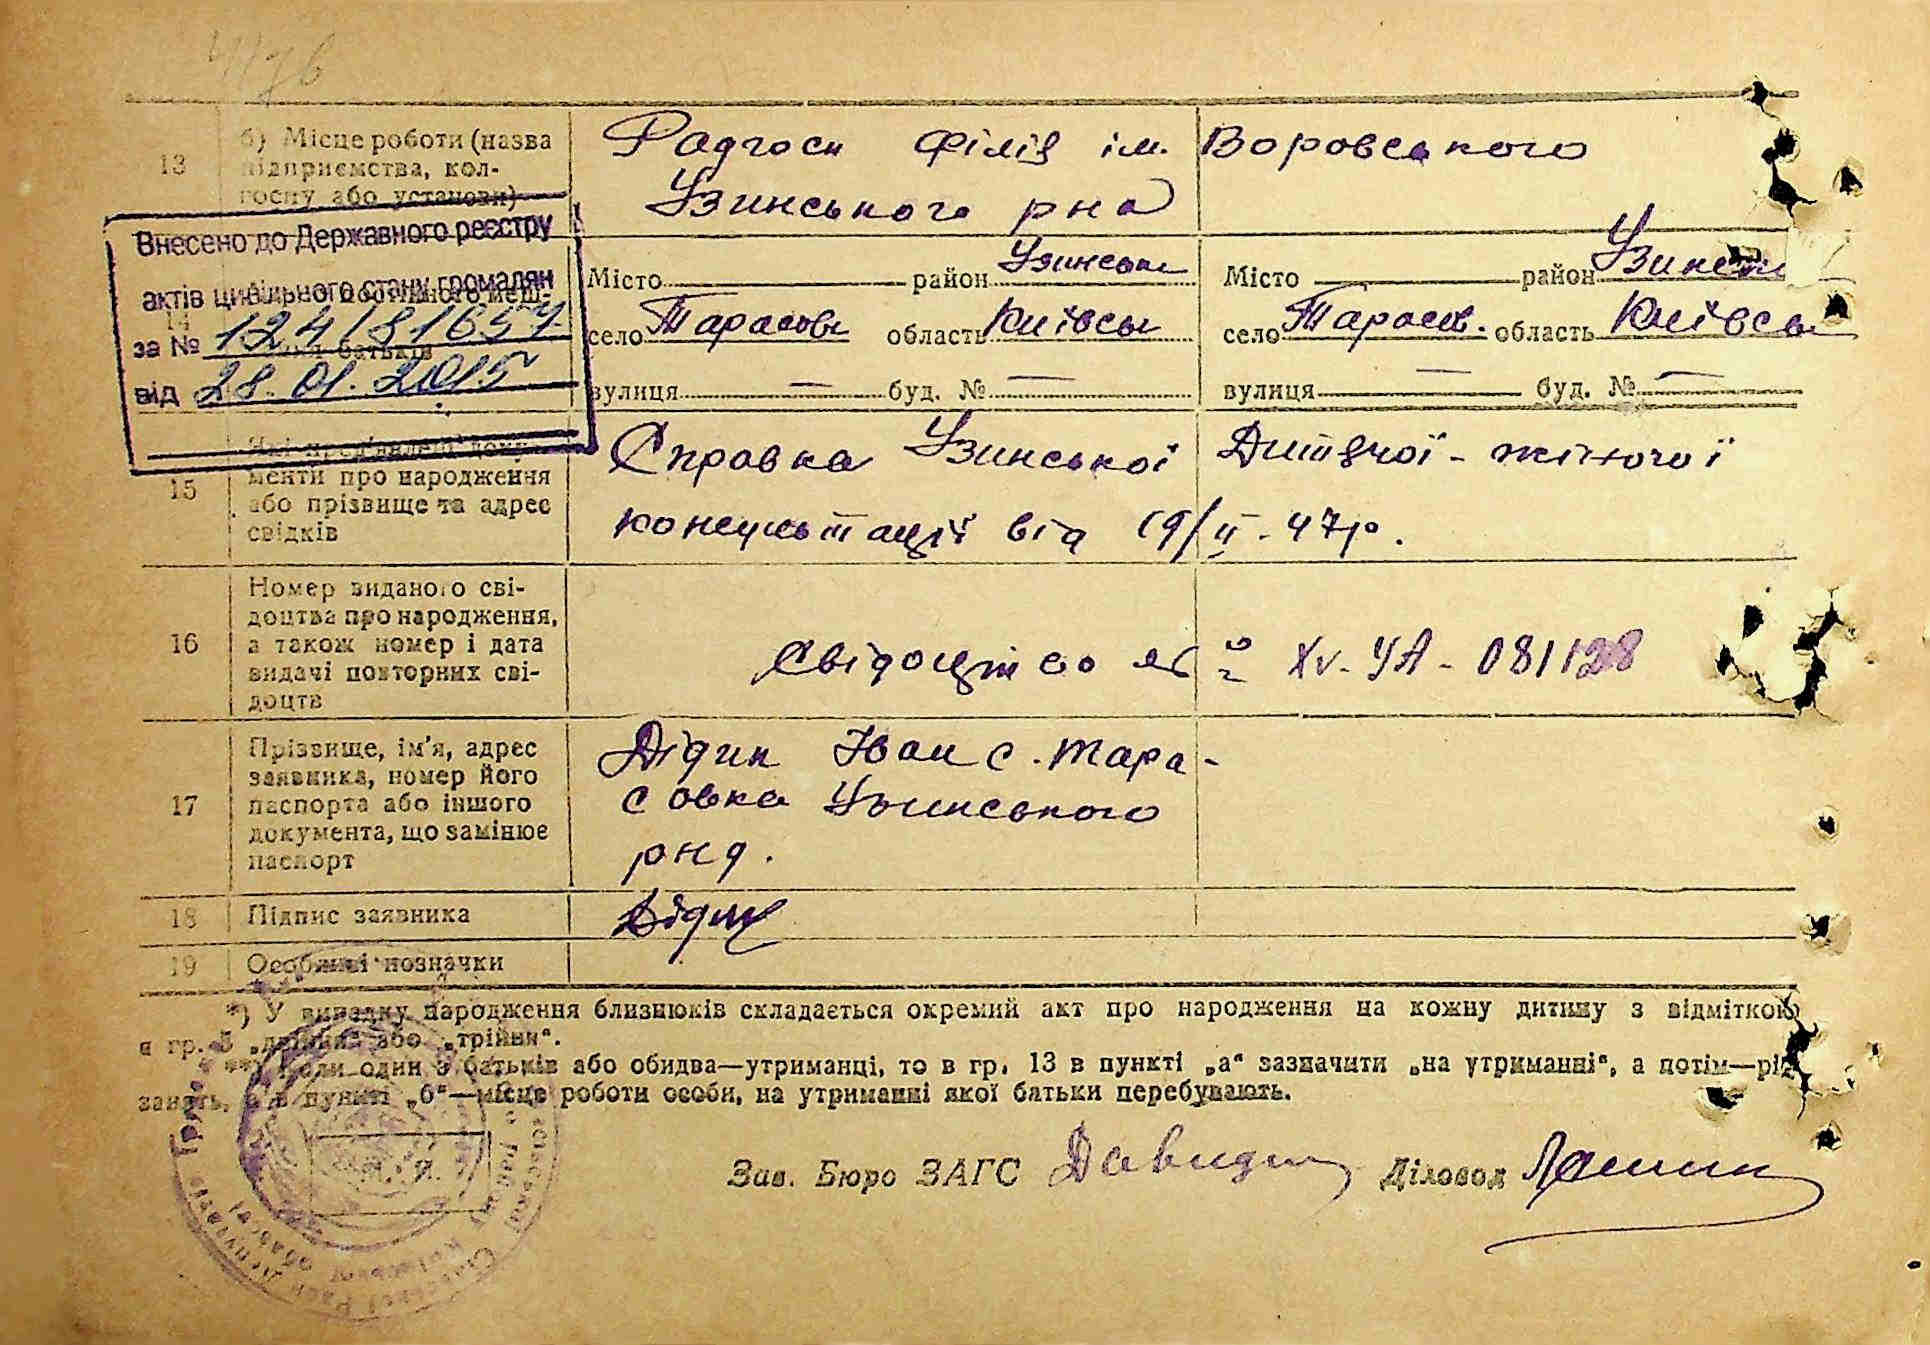 13
б) Місце роботи (назва
підприємства, кол-
госпу або установи)
Радгосп Філія ім. Воровського
Узинського рна
Внесено до Державного реєстру
актів цивільного стану громадян
за №
від 28.01.2015
14
батьків
Місто район Узинськ
село Тарасовк область Київськ
вулиця — буд. № —
Місто район Узинськ
село Тарасів. область Київськ
вулиця — буд. № —
15
Які пред'явлені доку-
менти про народження
або прізвище та адрес
свідків
Справка Узинської Дитячої - жіночої
консультації від 19/II-47р.
16
Номер виданого сві-
доцтва про народження,
а також номер і дата
видачі повторних сві-
доцтв
Свідоцтво XV-УА-081128
17
Прізвище, ім'я, адрес
заявника, номер його
паспорта або іншого
документа, що замінює
паспорт
Дідик Іван с. Тара-
совка Узинського
рна.
18
Підпис заявника
Дідик
19
Особливі позначки
*) У випадку народження близнюків складається окремий акт про народження на кожну дитину з відміткою
в гр. 5 „двійня" або „трійня".
**) Коли один з батьків або обидва—утриманці, то в гр. 13 в пункті „а" зазначити „на утриманні", а потім—рід
занять, а в пункті „б"—місце роботи особи, на утриманні якої батьки перебувають.
Зав. Бюро ЗАГС
Діловод